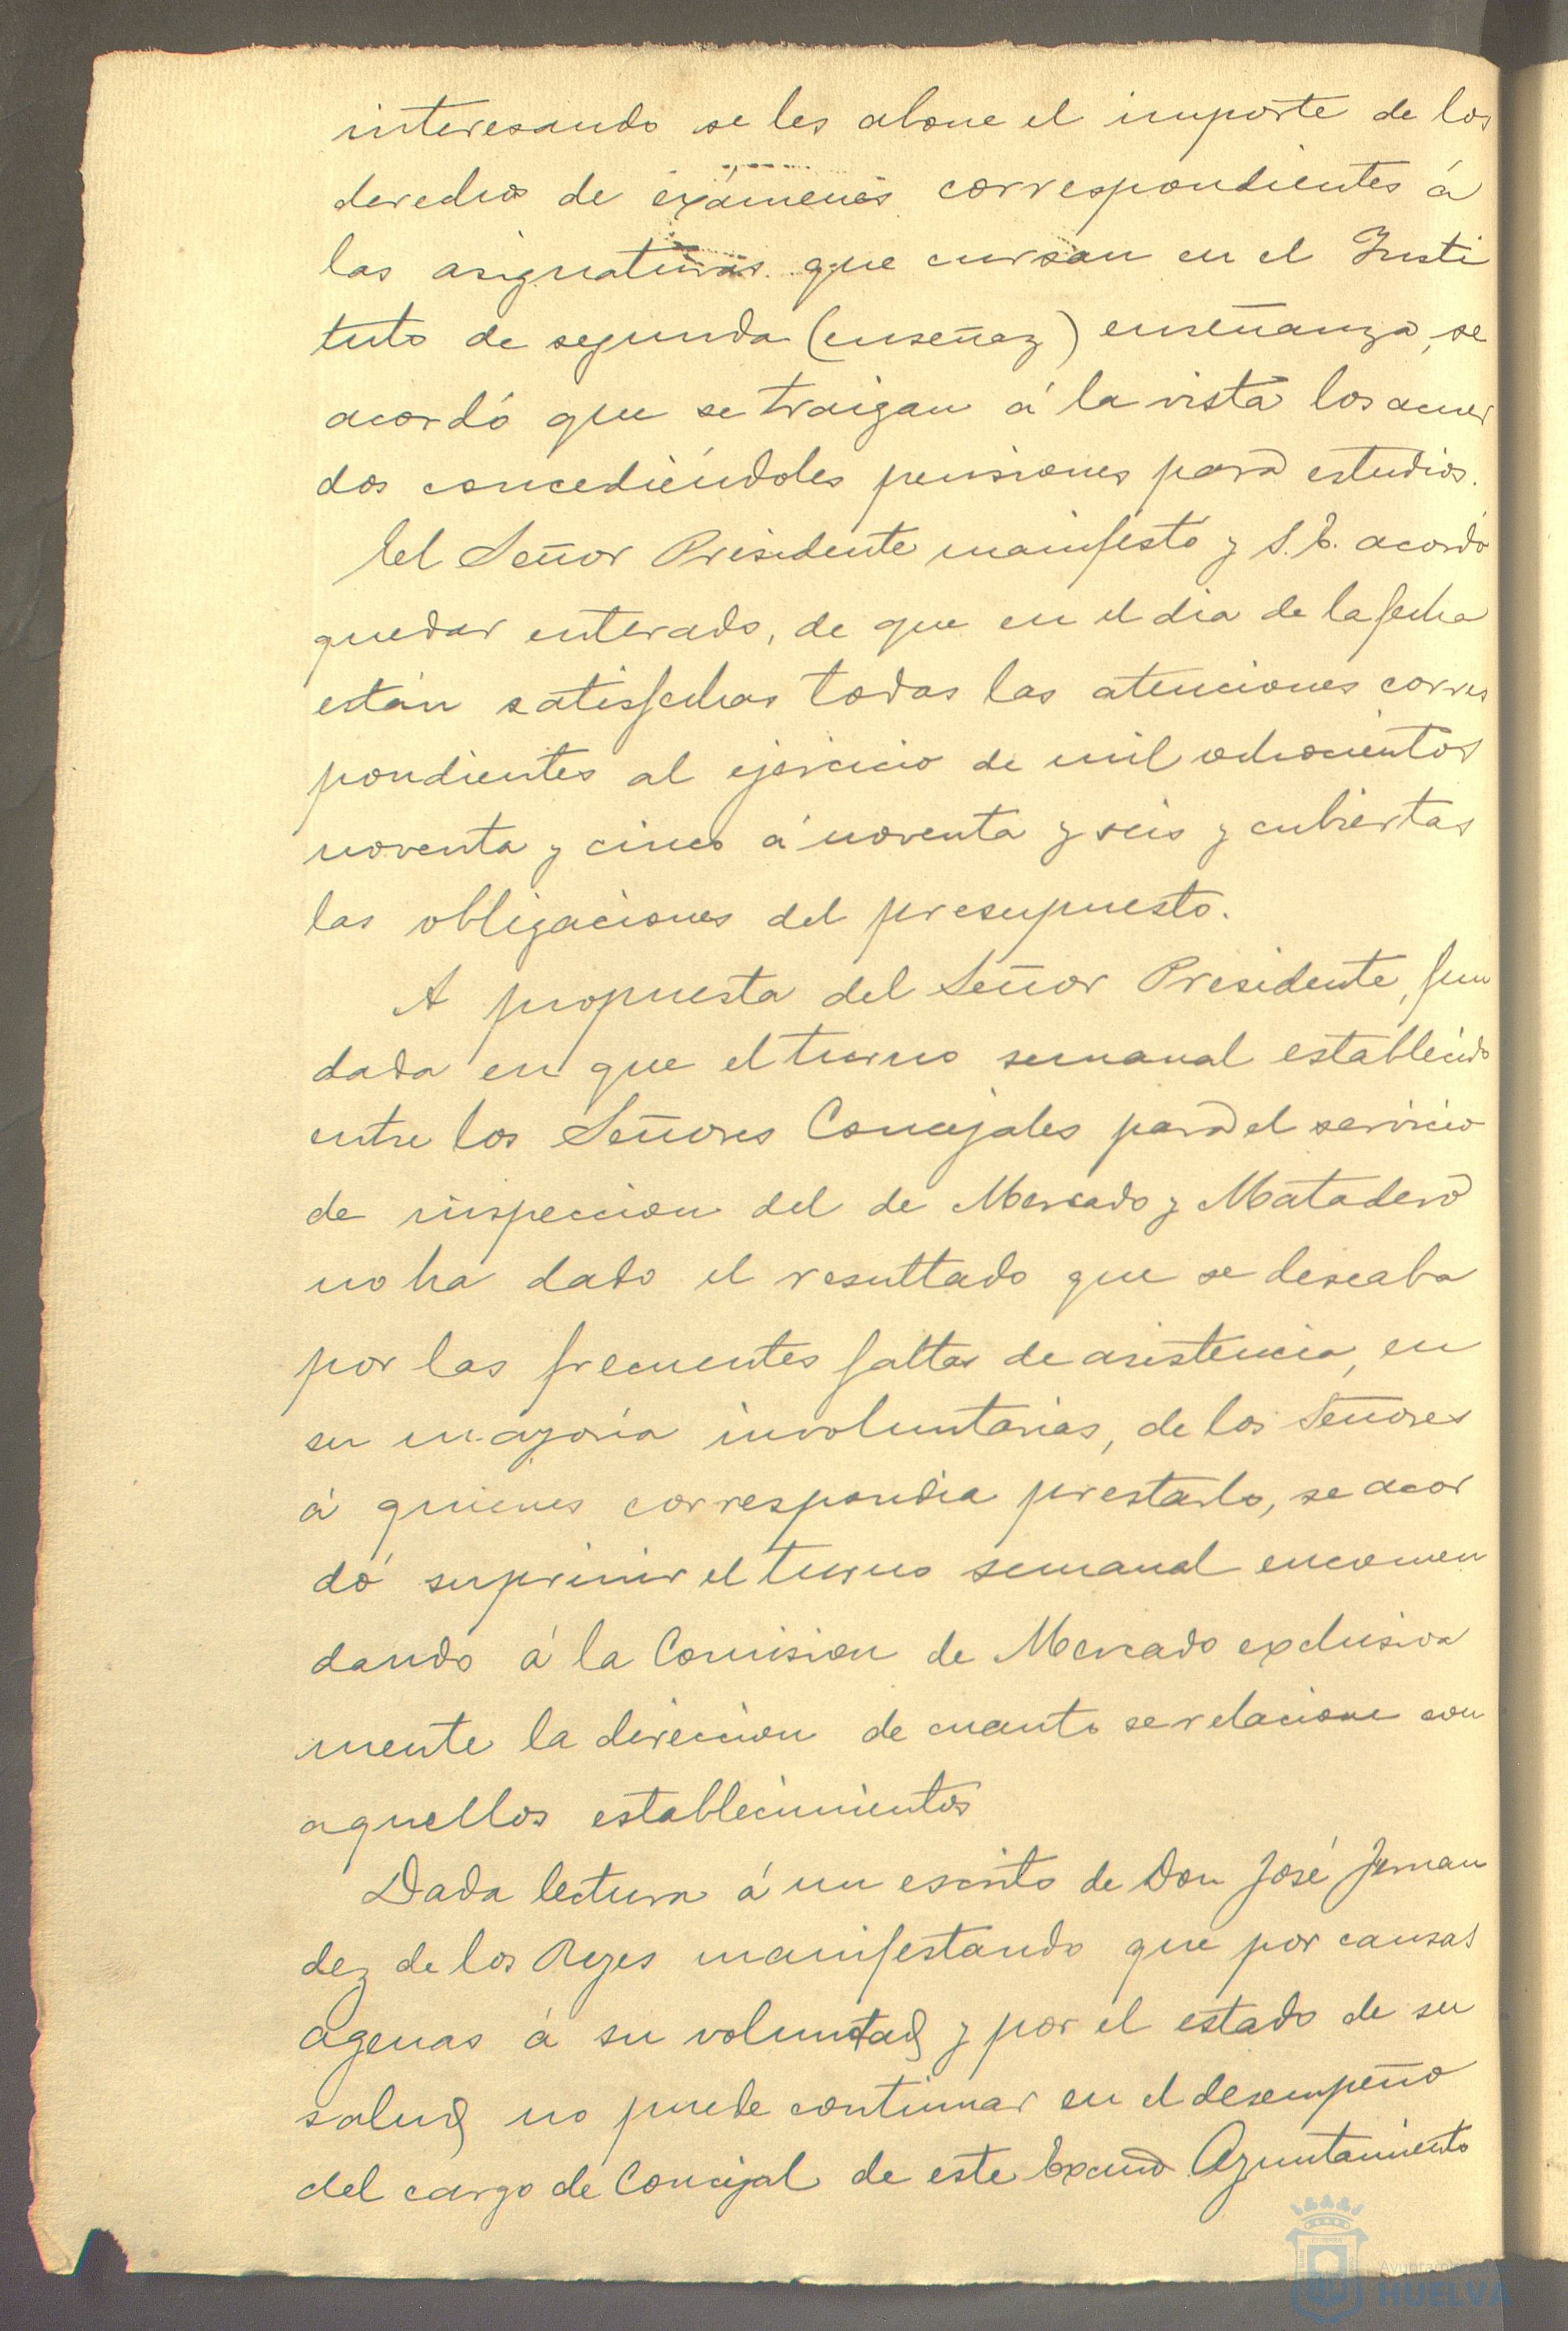 interesando se les abone el importe de los
derechos de exámenes correspondientes á
las asignaturas que cursan en el Insti
tuto de segunda (enseñaz) enseñanza, se
acordó que se traigan á la vista los acuer
dos concediéndoles pensiones para estudios.
El Señor Presidente manifestó y S.E. acordó
quedar enterado, de que en el dia de la fecha
están satisfechas todas las atenciones corres
pondientes al ejercicio de mil ochocientos
noventa y cinco á noventa y seis y cubiertas
las obligaciones del presupuesto.
A propuesta del Señor Presidente, fun
dada en que el turno semanal establecido
entre los Señores Concejales para el servicio
de inspeccion del de Mercado y Matadero
no ha dado el resultado que se deseaba
por las frecuentes faltas de asistencia, en
su mayoria involuntarias, de los Señores
á quienes correspondia prestarlo, se acor
dó suprimir el turno semanal encomen
dando á la Comision de Mercado exclusiva
mente la direccion de cuanto se relacione con
aquellos establecimientos
Dada lectura á un escrito de Don José Fernan
dez de los Reyes manifestando que por causas
agenas á su voluntad y por el estado de su
salud no puede continuar en el desempeño
del cargo de Concejal de este Excmo Ayuntamiento
Ayuntamiento
HUELVA